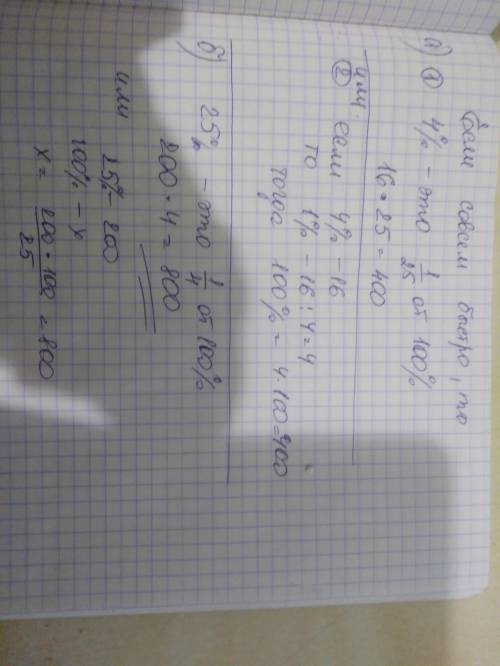 Если совсем быстро, то
а) ① 4% - это 1/25 от 100%
16 * 25 = 400
или
② если 4% - 16
то 1% - 16 : 4 = 4
тогда 100% = 4 · 100 = 400
б) 25% - это 1/4 от 100%
200 · 4 = 800
или 25% - 200
100% - x
x = 200 · 100 / 25 = 800